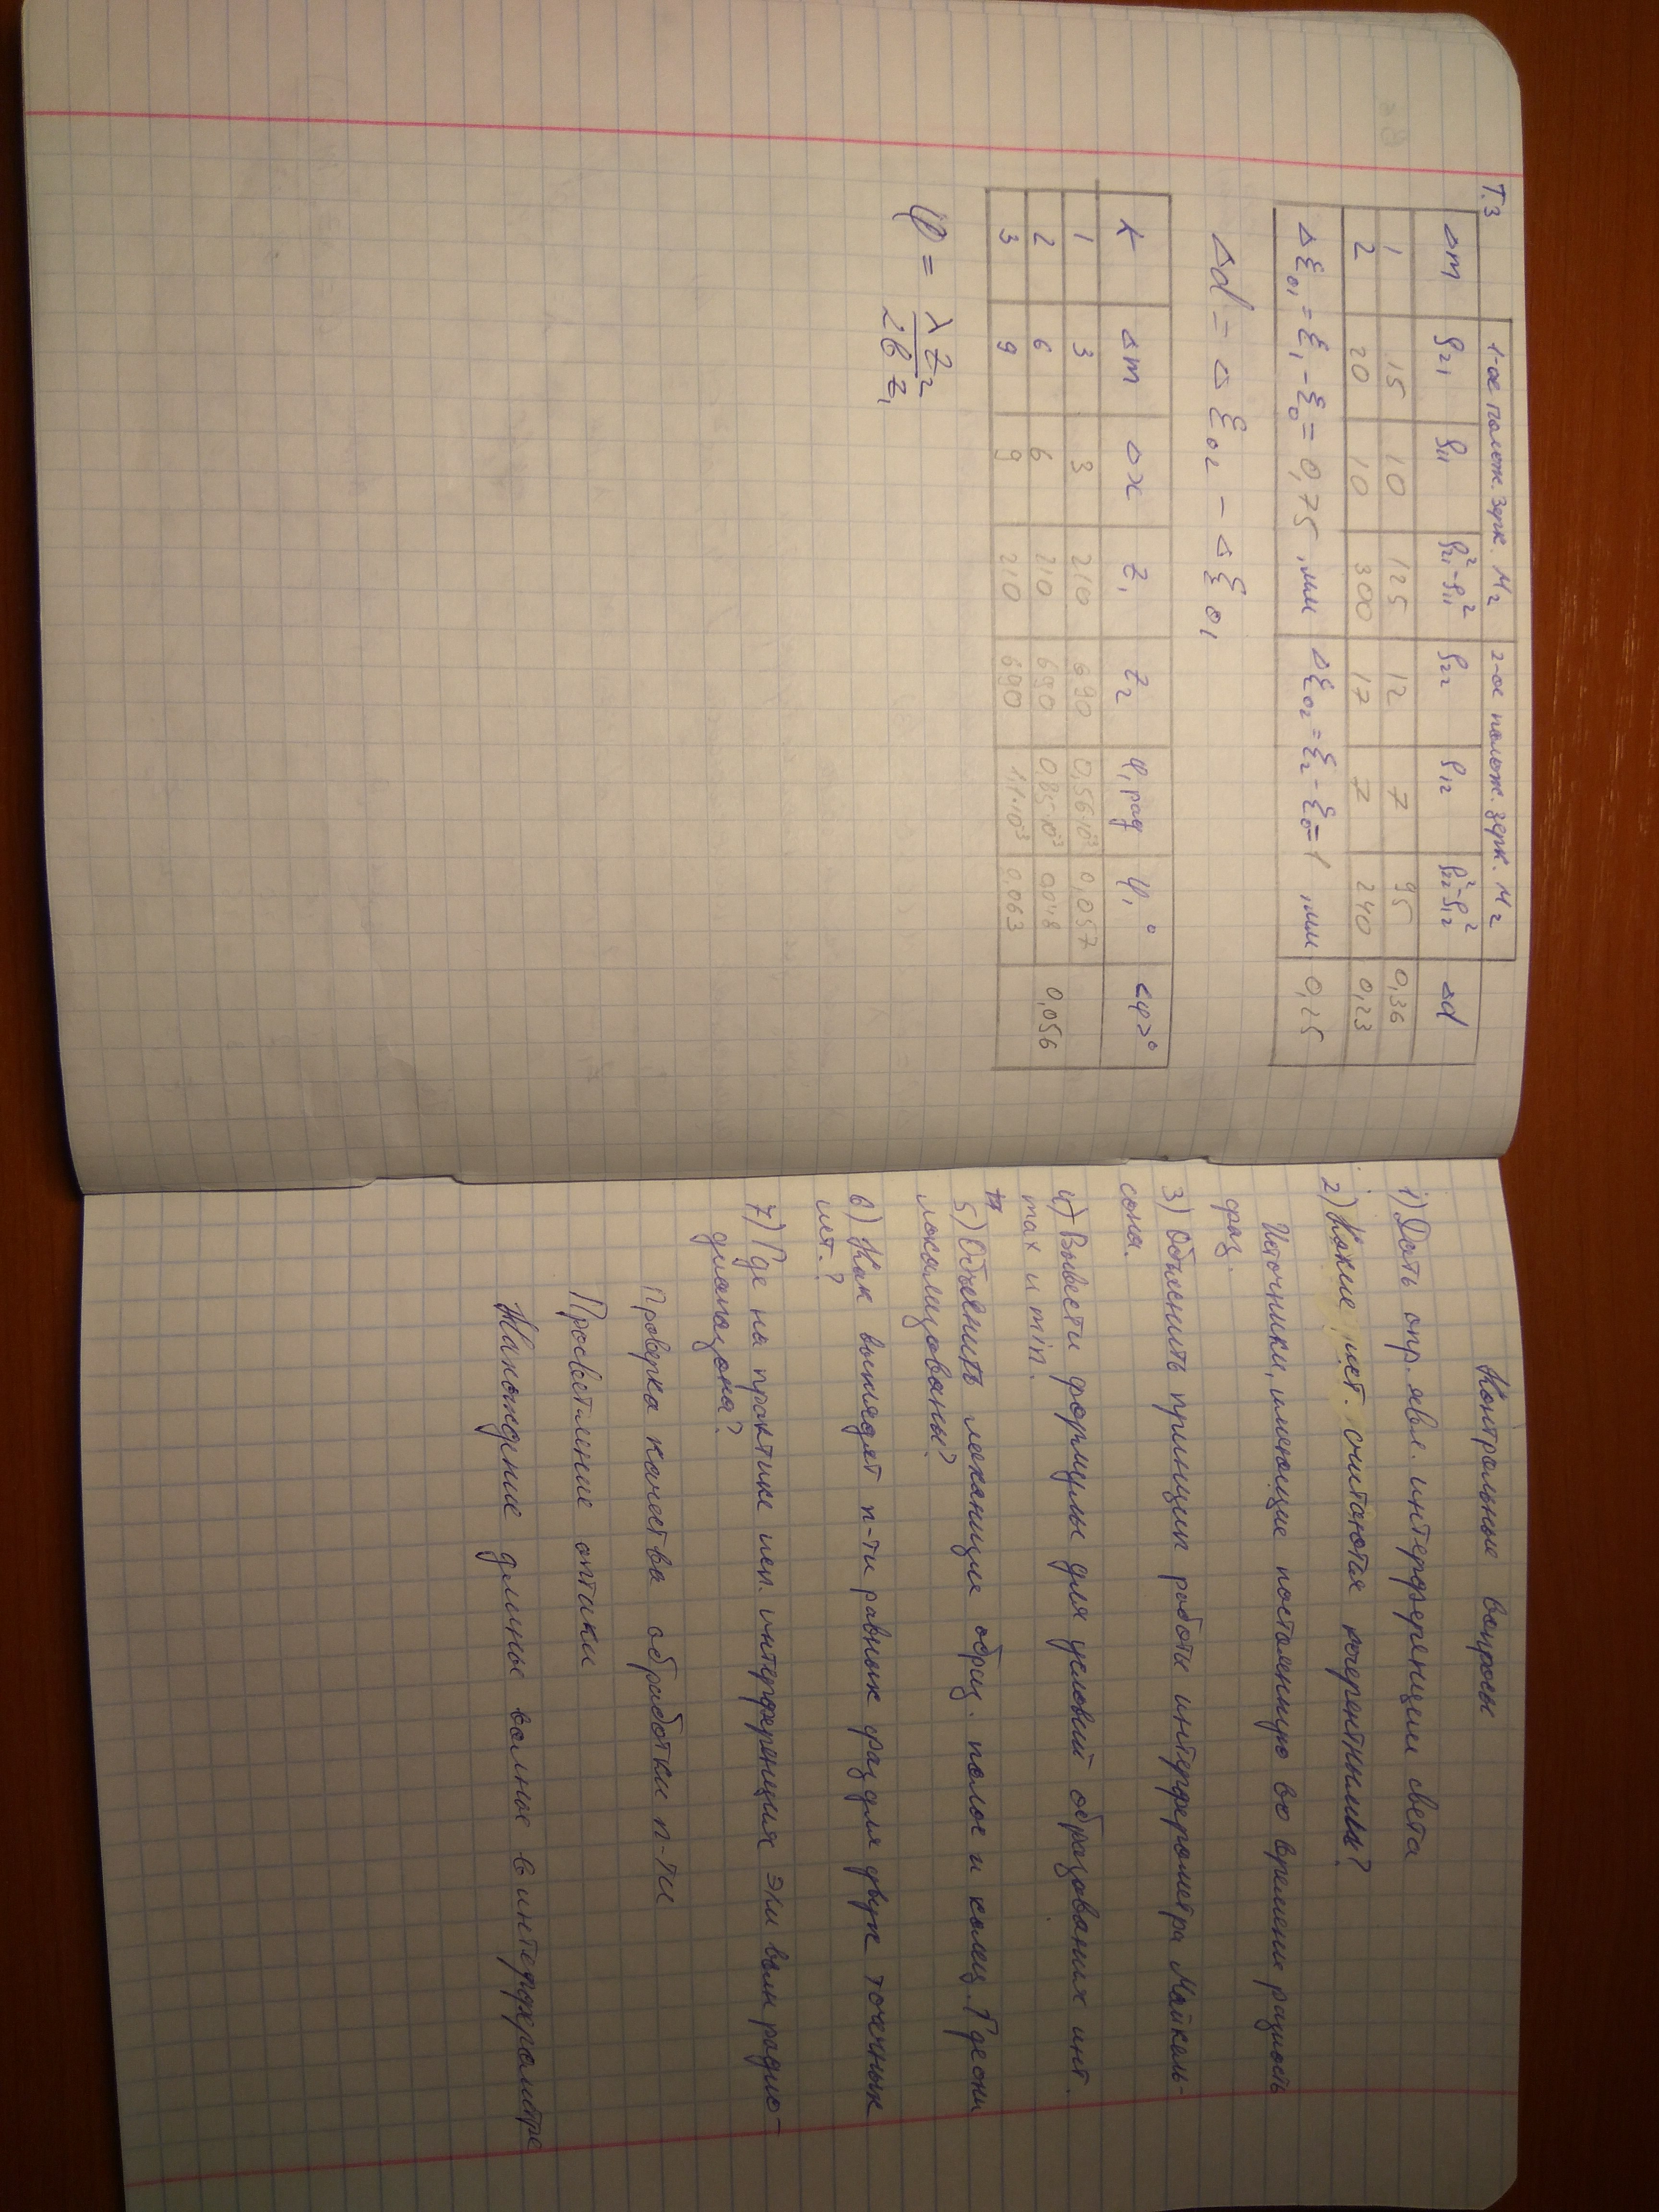 Т.3
1-ое полож. зерк. M₂ 2-ое полож. зерк. M₂
Δm ρ₂₁ ρ₁₁ ρ₂₁²-ρ₁₁² ρ₂₂ ρ₁₂ ρ₂₂²-ρ₁₂² Δd
1 15 10 125 12 7 95 0,36
2 20 10 300 17 7 240 0,23
Δξ₀₁ = ξ₁ - ξ₀ = 0,75 , мм Δξ₀₂ = ξ₂ - ξ₀ = 1 , мм 0,25
Δd = Δξ₀₂ - Δξ₀₁
K Δm Δx Z₁ Z₂ φ, рад φ, ° <φ>°
1 3 3 210 690 0,56·10⁻³ 0,057
2 6 6 210 690 0,85·10⁻³ 0,048 0,056
3 9 9 210 690 1,1·10⁻³ 0,063
φ = λ Z₂ / 2b Z₁
Контрольные вопросы
1) Дать опр. явл. интерференции света
2) Какие ист. считаются когерентными?
Источники, имеющие постоянную во времени разность
фаз.
3) Объяснить принцип работы интерферометра Майкель-
сона.
4) Вывести формулы для условий образования инт.
max и min.
5) Объяснить механизм образ. полос и колец. Где они
локализованы?
6) Как выглядят п-ти равных фаз для двух точечных
ист.?
7) Где на практике исп. интерференция эл-м волн радио-
диапазона?
Проверка качества обработки п-ти
Просветление оптики
Нахождение длины волны в интерферометре